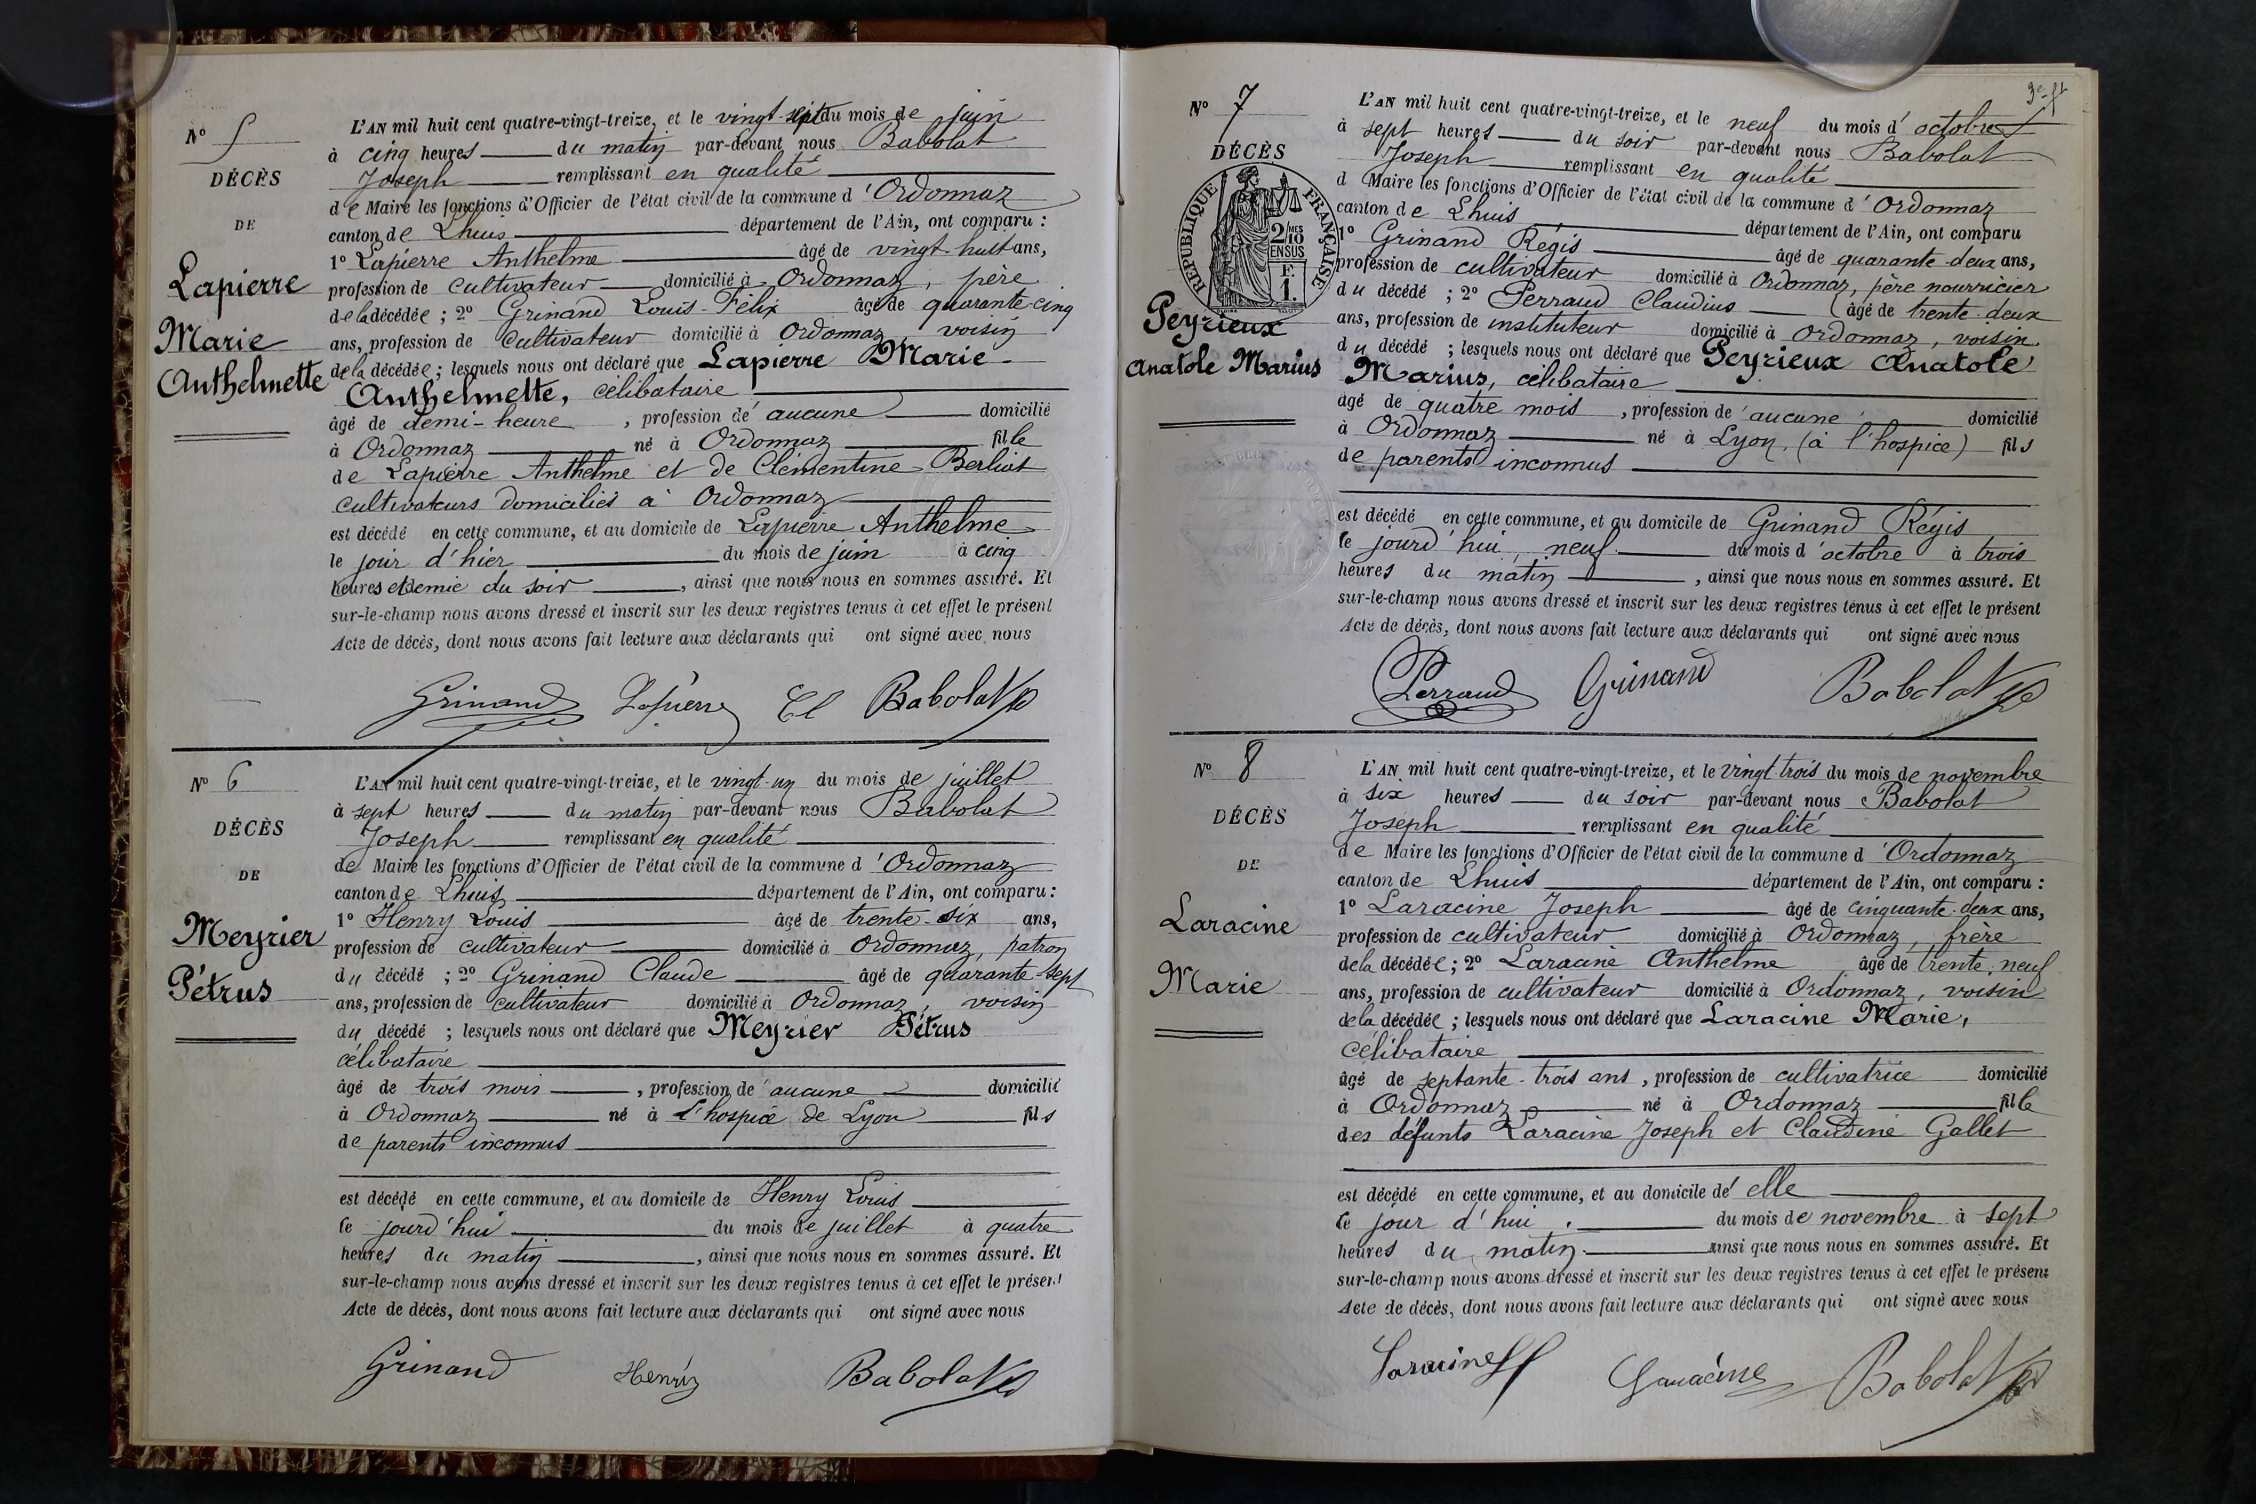 N° 5
DÉCÈS
DE
Lapierre
Marie
Anthelmette
L'AN mil huit cent quatre-vingt-treize, et le vingt-sept du mois de juin
à cinq heures du matin par-devant nous Babolat
Joseph remplissant en qualité
de Maire les fonctions d'Officier de l'état civil de la commune d'Ordonnaz
canton de Lhuis département de l'Ain, ont comparu :
1° Lapierre Anthelme âgé de vingt-huit ans,
profession de cultivateur domicilié à Ordonnaz, père
de la décédée ; 2° Grinand Louis-Félix âgé de quarante-cinq
ans, profession de cultivateur domicilié à Ordonnaz, voisin
de la décédée ; lesquels nous ont déclaré que Lapierre Marie
Anthelmette, célibataire
âgé de demi-heure, profession de aucune domicilié
à Ordonnaz né à Ordonnaz fille
de Lapierre Anthelme et de Clémentine Berliot
cultivateurs domiciliés à Ordonnaz
est décédé en cette commune, et au domicile de Lapierre Anthelme
le jour d'hier du mois de juin à cinq
heures et demie du soir, ainsi que nous nous en sommes assuré. Et
sur-le-champ nous avons dressé et inscrit sur les deux registres tenus à cet effet le présent
Acte de décès, dont nous avons fait lecture aux déclarants qui ont signé avec nous
Grinand Lapierre Babolat
N° 6
DÉCÈS
DE
Meyrier
Pétrus
L'AN mil huit cent quatre-vingt-treize, et le vingt-un du mois de juillet
à sept heures du matin par-devant nous Babolat
Joseph remplissant en qualité
de Maire les fonctions d'Officier de l'état civil de la commune d'Ordonnaz
canton de Lhuis département de l'Ain, ont comparu :
1° Henry Louis âgé de trente-six ans,
profession de cultivateur domicilié à Ordonnaz, patron
du décédé ; 2° Grinand Claude âgé de quarante-sept
ans, profession de cultivateur domicilié à Ordonnaz, voisin
du décédé ; lesquels nous ont déclaré que Meyrier Pétrus
célibataire
âgé de trois mois, profession de aucune domicilié
à Ordonnaz né à l'hospice de Lyon fils
de parents inconnus
est décédé en cette commune, et au domicile de Henry Louis
le jourd'hui du mois de juillet à quatre
heures du matin, ainsi que nous nous en sommes assuré. Et
sur-le-champ nous avons dressé et inscrit sur les deux registres tenus à cet effet le présent
Acte de décès, dont nous avons fait lecture aux déclarants qui ont signé avec nous
Grinand Henriz Babolat
N° 7
DÉCÈS
RÉPUBLIQUE FRANÇAISE
2 MES
10
EN SUS
F.
1.
Peyrieux
Anatole Marius
L'AN mil huit cent quatre-vingt-treize, et le neuf du mois d'octobre
à sept heures du soir par-devant nous Babolat
Joseph remplissant en qualité
d Maire les fonctions d'Officier de l'état civil de la commune d'Ordonnaz
canton de Lhuis département de l'Ain, ont comparu
1° Grinand Régis âgé de quarante-deux ans,
profession de cultivateur domicilié à Ordonnaz, père nourricier
du décédé ; 2° Perraud Claudius âgé de trente-deux
ans, profession de instituteur domicilié à Ordonnaz, voisin
du décédé ; lesquels nous ont déclaré que Peyrieux Anatole
Marius, célibataire
âgé de quatre mois, profession de aucune domicilié
à Ordonnaz né à Lyon, (à l'hospice) fils
de parents inconnus
est décédé en cette commune, et au domicile de Grinand Régis
le jourd'hui, neuf du mois d'octobre à trois
heures du matin, ainsi que nous nous en sommes assuré. Et
sur-le-champ nous avons dressé et inscrit sur les deux registres tenus à cet effet le présent
Acte de décès, dont nous avons fait lecture aux déclarants qui ont signé avec nous
Perraud Grinand Babolat
N° 8
DÉCÈS
DE
Laracine
Marie
L'AN mil huit cent quatre-vingt-treize, et le vingt-trois du mois de novembre
à six heures du soir par-devant nous Babolat
Joseph remplissant en qualité
de Maire les fonctions d'Officier de l'état civil de la commune d'Ordonnaz
canton de Lhuis département de l'Ain, ont comparu :
1° Laracine Joseph âgé de cinquante-deux ans,
profession de cultivateur domicilié à Ordonnaz, frère
de la décédée ; 2° Laracine Anthelme âgé de trente-neuf
ans, profession de cultivateur domicilié à Ordonnaz, voisin
de la décédée ; lesquels nous ont déclaré que Laracine Marie,
célibataire
âgé de septante-trois ans, profession de cultivatrice domicilié
à Ordonnaz né à Ordonnaz fille
des défunts Laracine Joseph et Claudine Gallet
est décédé en cette commune, et au domicile d'elle
le jour d'hui du mois de novembre à sept
heures du matin ainsi que nous nous en sommes assuré. Et
sur-le-champ nous avons dressé et inscrit sur les deux registres tenus à cet effet le présent
Acte de décès, dont nous avons fait lecture aux déclarants qui ont signé avec nous
Laracine Laracine Babolat